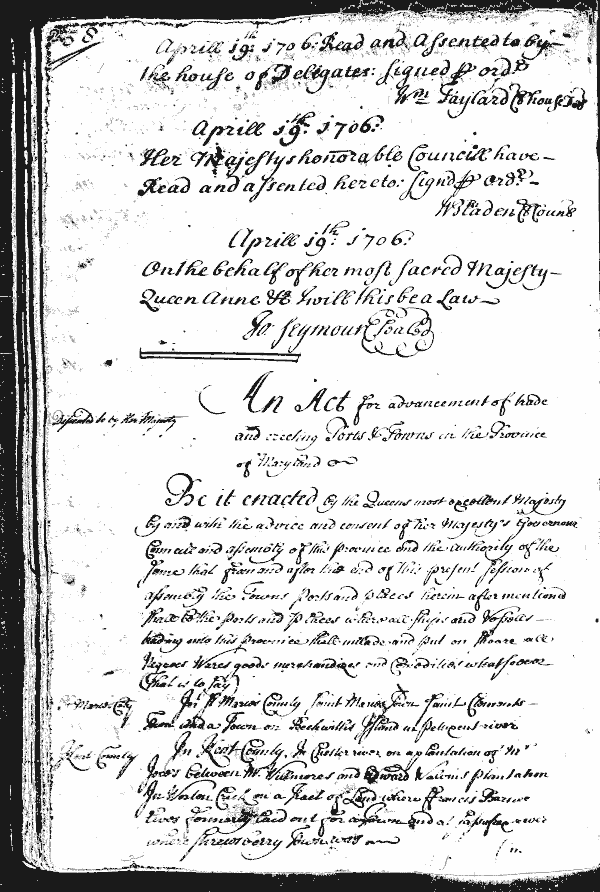 Aprill 19th: 1706: Read and Assented to by
the house of Delegates: signed p ordr
Wm Taylard Cl house Del
Aprill 19th: 1706:
Her Majestys honorable Councill have
Read and assented hereto: signd p ordr
W Bladen Cl Coun
Aprill 19th: 1706:
On the behalf of her most sacred Majesty
Queen Anne &c I will this be a Law
Jo Seymour Seal
An Act for advancement of trade
Desented to by Her Majesty
and erecting Ports & Towns in the Province
of Maryland
Be it enacted by the Queens most excellent Majesty
by and with the advice and consent of her Majesty's Governour
Councill and assembly of this province and the authority of the
same that from and after the end of this present session of
assembly the Towns Ports and places herein after mentioned
shall be the ports and places where all ships and vessels
trading into this province shall unlade and put on shoare all
Negroes Wares goods merchandizes and comodities whatsoever
(that is to say)
St Maries Coty
In St Maries County Saint Maries Town Saint Clements
Town and a Town on Island in Petuxent river
Kent County
In Kent County, In Chester river on a plantation of Mr
Joces between Mr Willmores and Edward Plantation
In Worton Creek on a Tract of Land where Francis Barne
lives formerly laid out for a Town and at Sassafras river
where Shrewsberry Town was
In